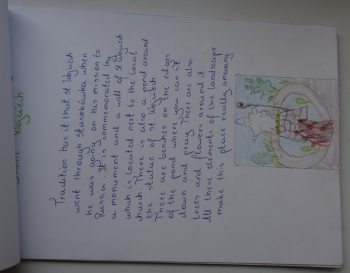 St Wojciech
Tradition has it that St Wojciech
went through Staszkówka when
he was going on his mission to
Russia. It is commemorated by
a monument and a well of St Wojciech
which is located next to the local
church. There is also a pond around
the statue of St Wojciech
There are benches on the edges
of the pond where you can sit
down and pray. There are also
trees and flowers around it
All these elements of the landscape
make this place really amazing